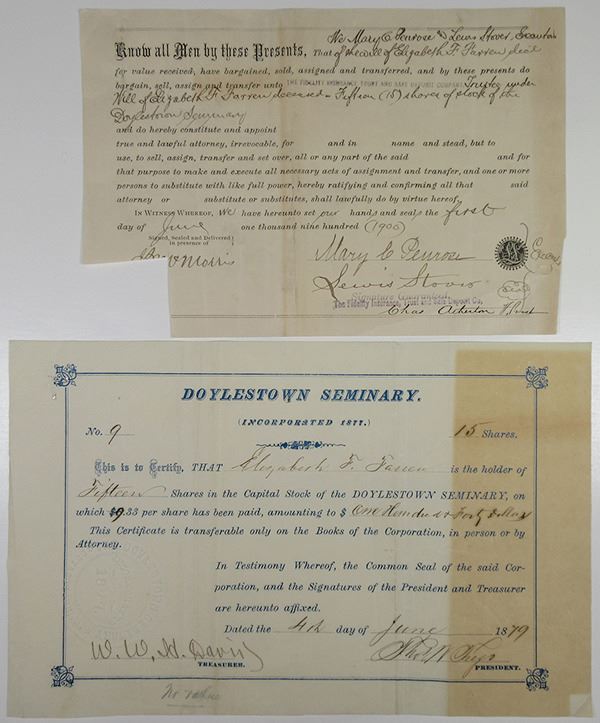 We Mary C Penrose & Lewis Stover, Executors
Know all Men by these Presents, That of the will of Elizabeth F. Farren dec'd
for value received, have bargained, sold, assigned and transferred, and by these presents do
bargain, sell, assign and transfer unto THE FIDELITY INSURANCE TRUST AND SAFE DEPOSIT COMPANY Trustee under
Will of Elizabeth F. Farren deceased - Fifteen (15) shares of stock of the
Doylestown Seminary
and do hereby constitute and appoint
true and lawful attorney, irrevocable, for and in name and stead, but to
use, to sell, assign, transfer and set over, all or any part of the said and for
that purpose to make and execute all necessary acts of assignment and transfer, and one or more
persons to substitute with like full power, hereby ratifying and confirming all that said
attorney or substitute or substitutes, shall lawfully do by virtue hereof.
In Witness Whereof, We have hereunto set our hands and seals the first
day of June one thousand nine hundred (1900)
Signed, Sealed and Delivered
in presence of
Morris
Mary C Penrose
Lewis Stover
Signature Guaranteed.
The Fidelity Insurance, Trust and Safe Deposit Co.
Chas Atherton V. Prest
DOYLESTOWN SEMINARY.
(INCORPORATED 1877.)
No. 9 15 Shares.
This is to Certify, THAT Elizabeth F. Farren is the holder of
Fifteen Shares in the Capital Stock of the DOYLESTOWN SEMINARY, on
which $9.33 per share has been paid, amounting to $ One Hundred & Forty Dollars
This Certificate is transferable only on the Books of the Corporation, in person or by
Attorney.
In Testimony Whereof, the Common Seal of the said Cor-
poration, and the Signatures of the President and Treasurer
are hereunto affixed.
Dated the 4th day of June 1879
W. W. H. Davis
TREASURER.
PRESIDENT.
No value